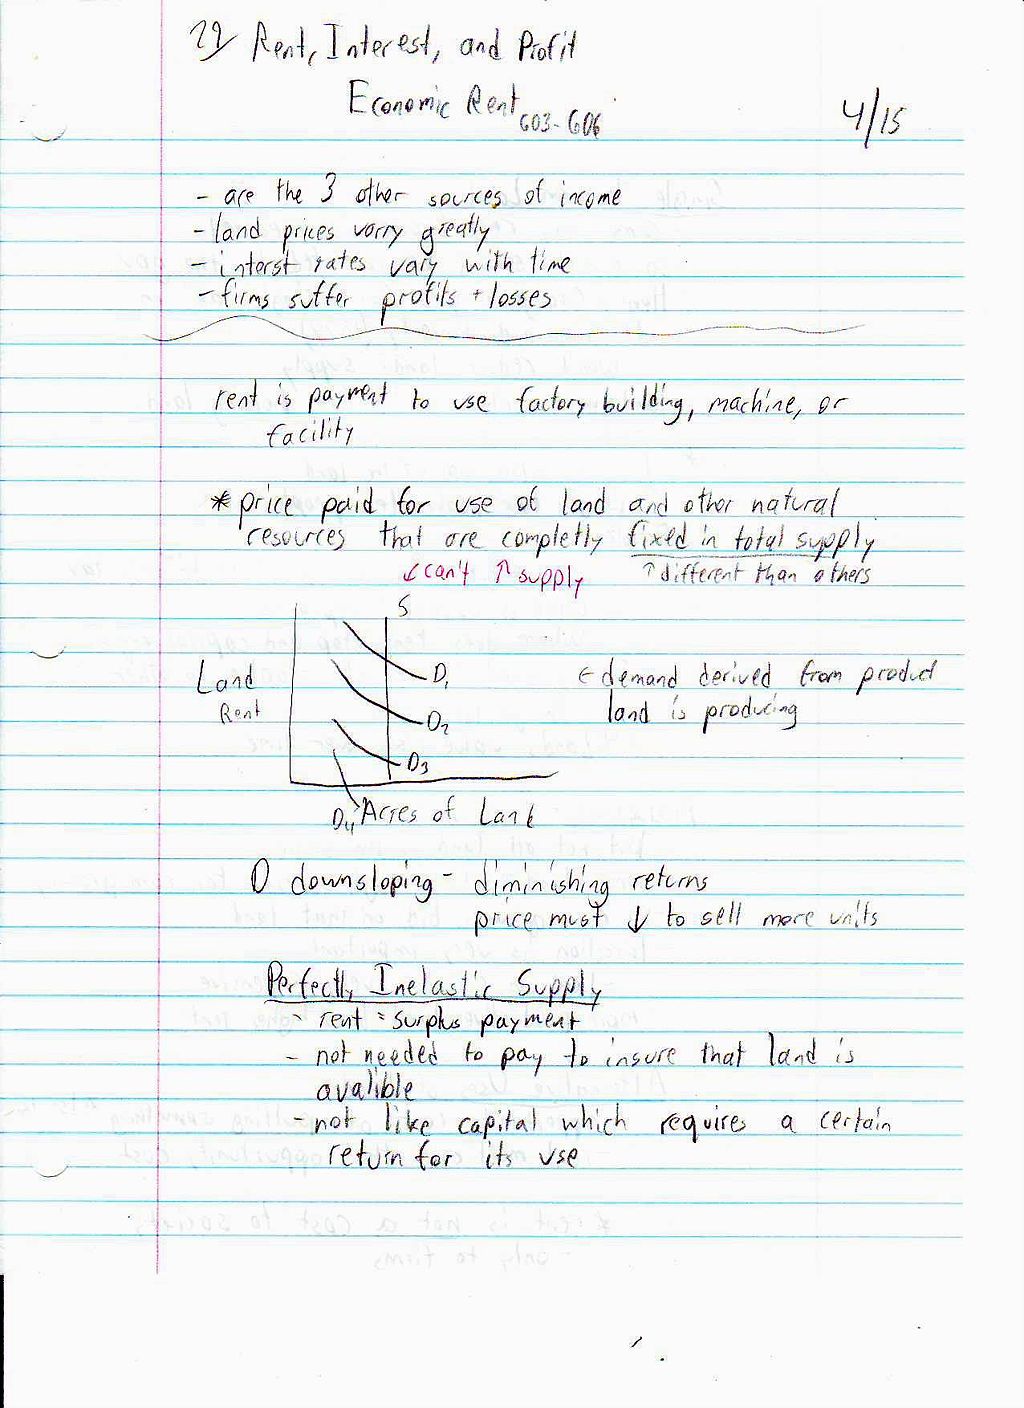 29 Rent, Interest, and Profit
Economic Rent 603-606
4/15
- are the 3 other sources of income
- land prices varry greatly
- interst rates vary with time
- firms suffer profits + losses
rent is payment to use factory building, machine, or
facility
* price paid for use of land and other natural
resources that are completly fixed in total supply
↙ can't ↑ supply ↑ different than others
S
Land
Rent
D1
D2
D3
D4
Acres of Land
← demand derived from product
land is producing
D downsloping - diminishing returns
price must ↓ to sell more units
Perfectly Inelastic Supply
- rent = surplus payment
- not needed to pay to insure that land is
avalible
- not like capital which requires a certain
return for its use